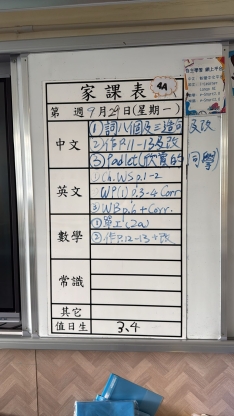 家課表
4A
第 週 9月29日(星期一)
中文
①詞八個及三造句及改
②作P.11-13及改
③Padlet(欣賞的同學)
英文
① Ch. WS p.1-2
WP(1) p.3-4 Corr
③ WB p.6 + Corr.
數學
①單工(2a)
②作P.12-13+改
常識
其它
值日生 3、4